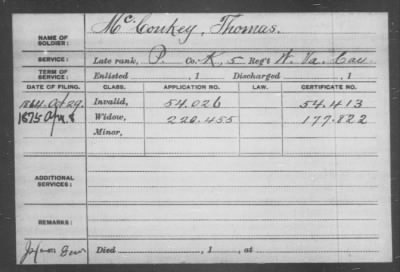 NAME OF SOLDIER: McConkey, Thomas.
SERVICE: Late rank, P. Co. K, 5 Reg't W. Va. Cav.
TERM OF SERVICE: Enlisted , 1 Discharged , 1
DATE OF FILING. CLASS. APPLICATION NO. LAW. CERTIFICATE NO.
1864 29 Invalid, 54.026 54.413
1875 Apr. 8 Widow, 220.455 177.822
Minor,
ADDITIONAL SERVICES:
REMARKS:
Died , 1 , at